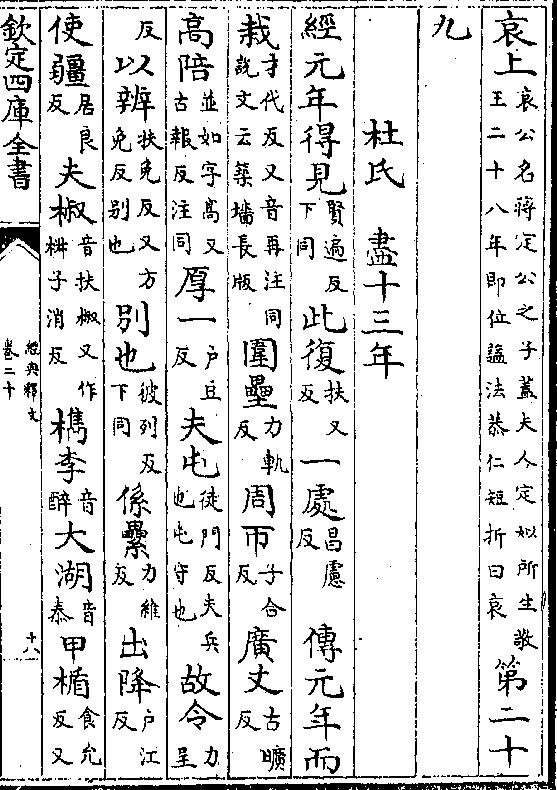 哀上哀公名蒋定公之子蓋夫人定姒所生敬王二十八年即位諡法恭仁短折曰哀第二十
九
杜氏　盡十三年
經元年得見賢遍反下同此復扶又反一處昌慮反　傳元年而
栽才代反又音再注同說文云築墻長版圍壘力軌反周帀子合反廣丈古曠反
高陪並如字高又古報反注同厚一户豆反夫屯徒門反夫兵也屯守也故令力呈
反以辨扶免反又方免反别也别也彼列反下同係纍力維反出降户江反
使疆居良反夫椒音扶椒又作子消反檇李音醉大湖音泰甲楯食允反又
欽定四庫全書
經典釋文
卷二十
十八